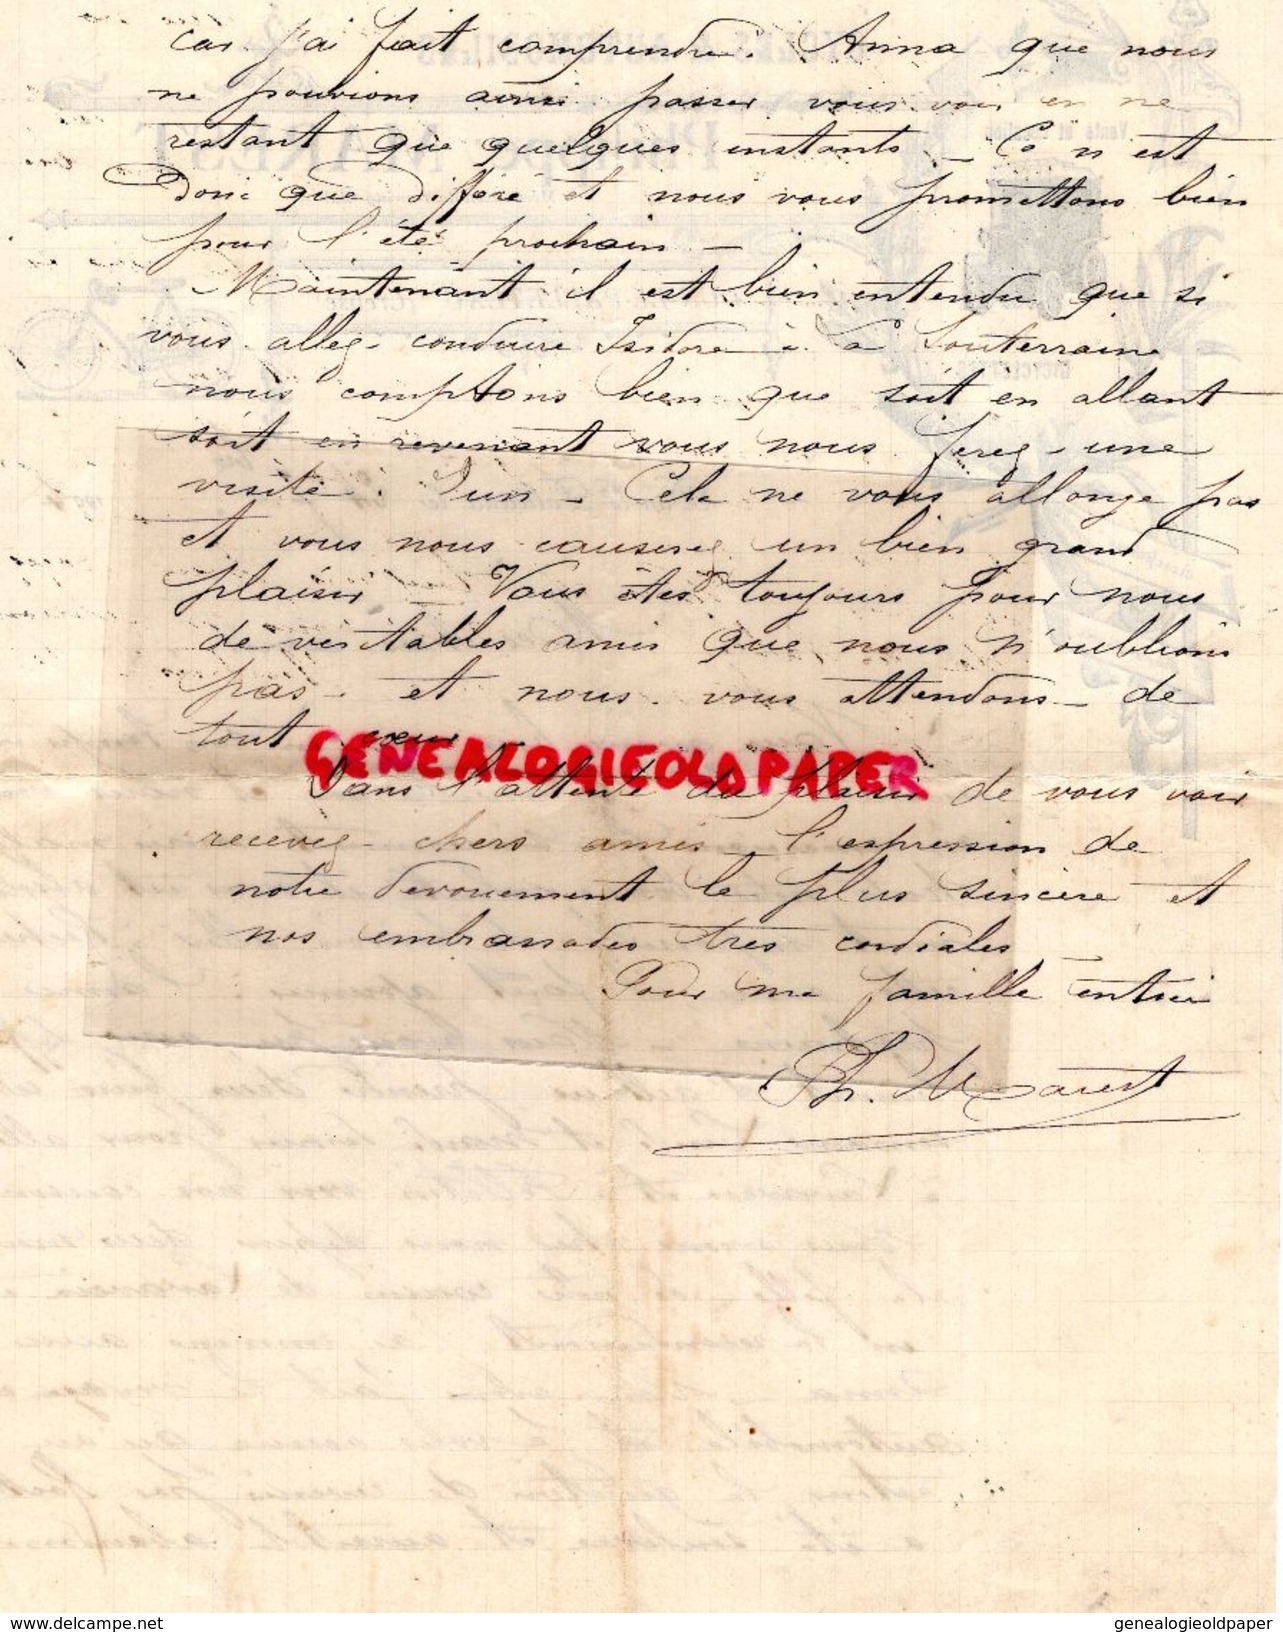 car j'ai fait comprendre. Anna que nous
ne pouvions ainsi passer vous voir en ne
restant que quelques instants _ Ce n'est
Donc que différé et nous vous promettons bien
pour l'été prochain _
Maintenant il est bien entendu que si
vous allez conduire Isidore à La Souterraine
nous comptons bien que soit en allant
soit en revenant vous nous ferez une
visite. _ Cela ne vous allonge pas
et vous nous causerez un bien grand
plaisir _ Vous êtes toujours pour nous
de véritables amis que nous n'oublions
pas et nous vous attendons de
tout coeur
GENEALOGIEOLDPAPER
Dans l'attente du plaisir de vous voir
recevez chers amis l'expression de
notre dévouement le plus sincère et
nos embrassades très cordiales
Pour ma famille entière
Ph. Marest
https://www.delcampe.net
genealogieoldpaper